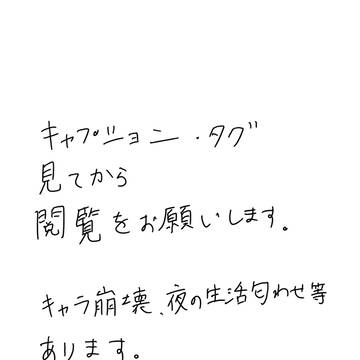 キャプション・タグ
見てから
閲覧をお願いします。
キャラ崩壊、夜の生活匂わせ等
あります。